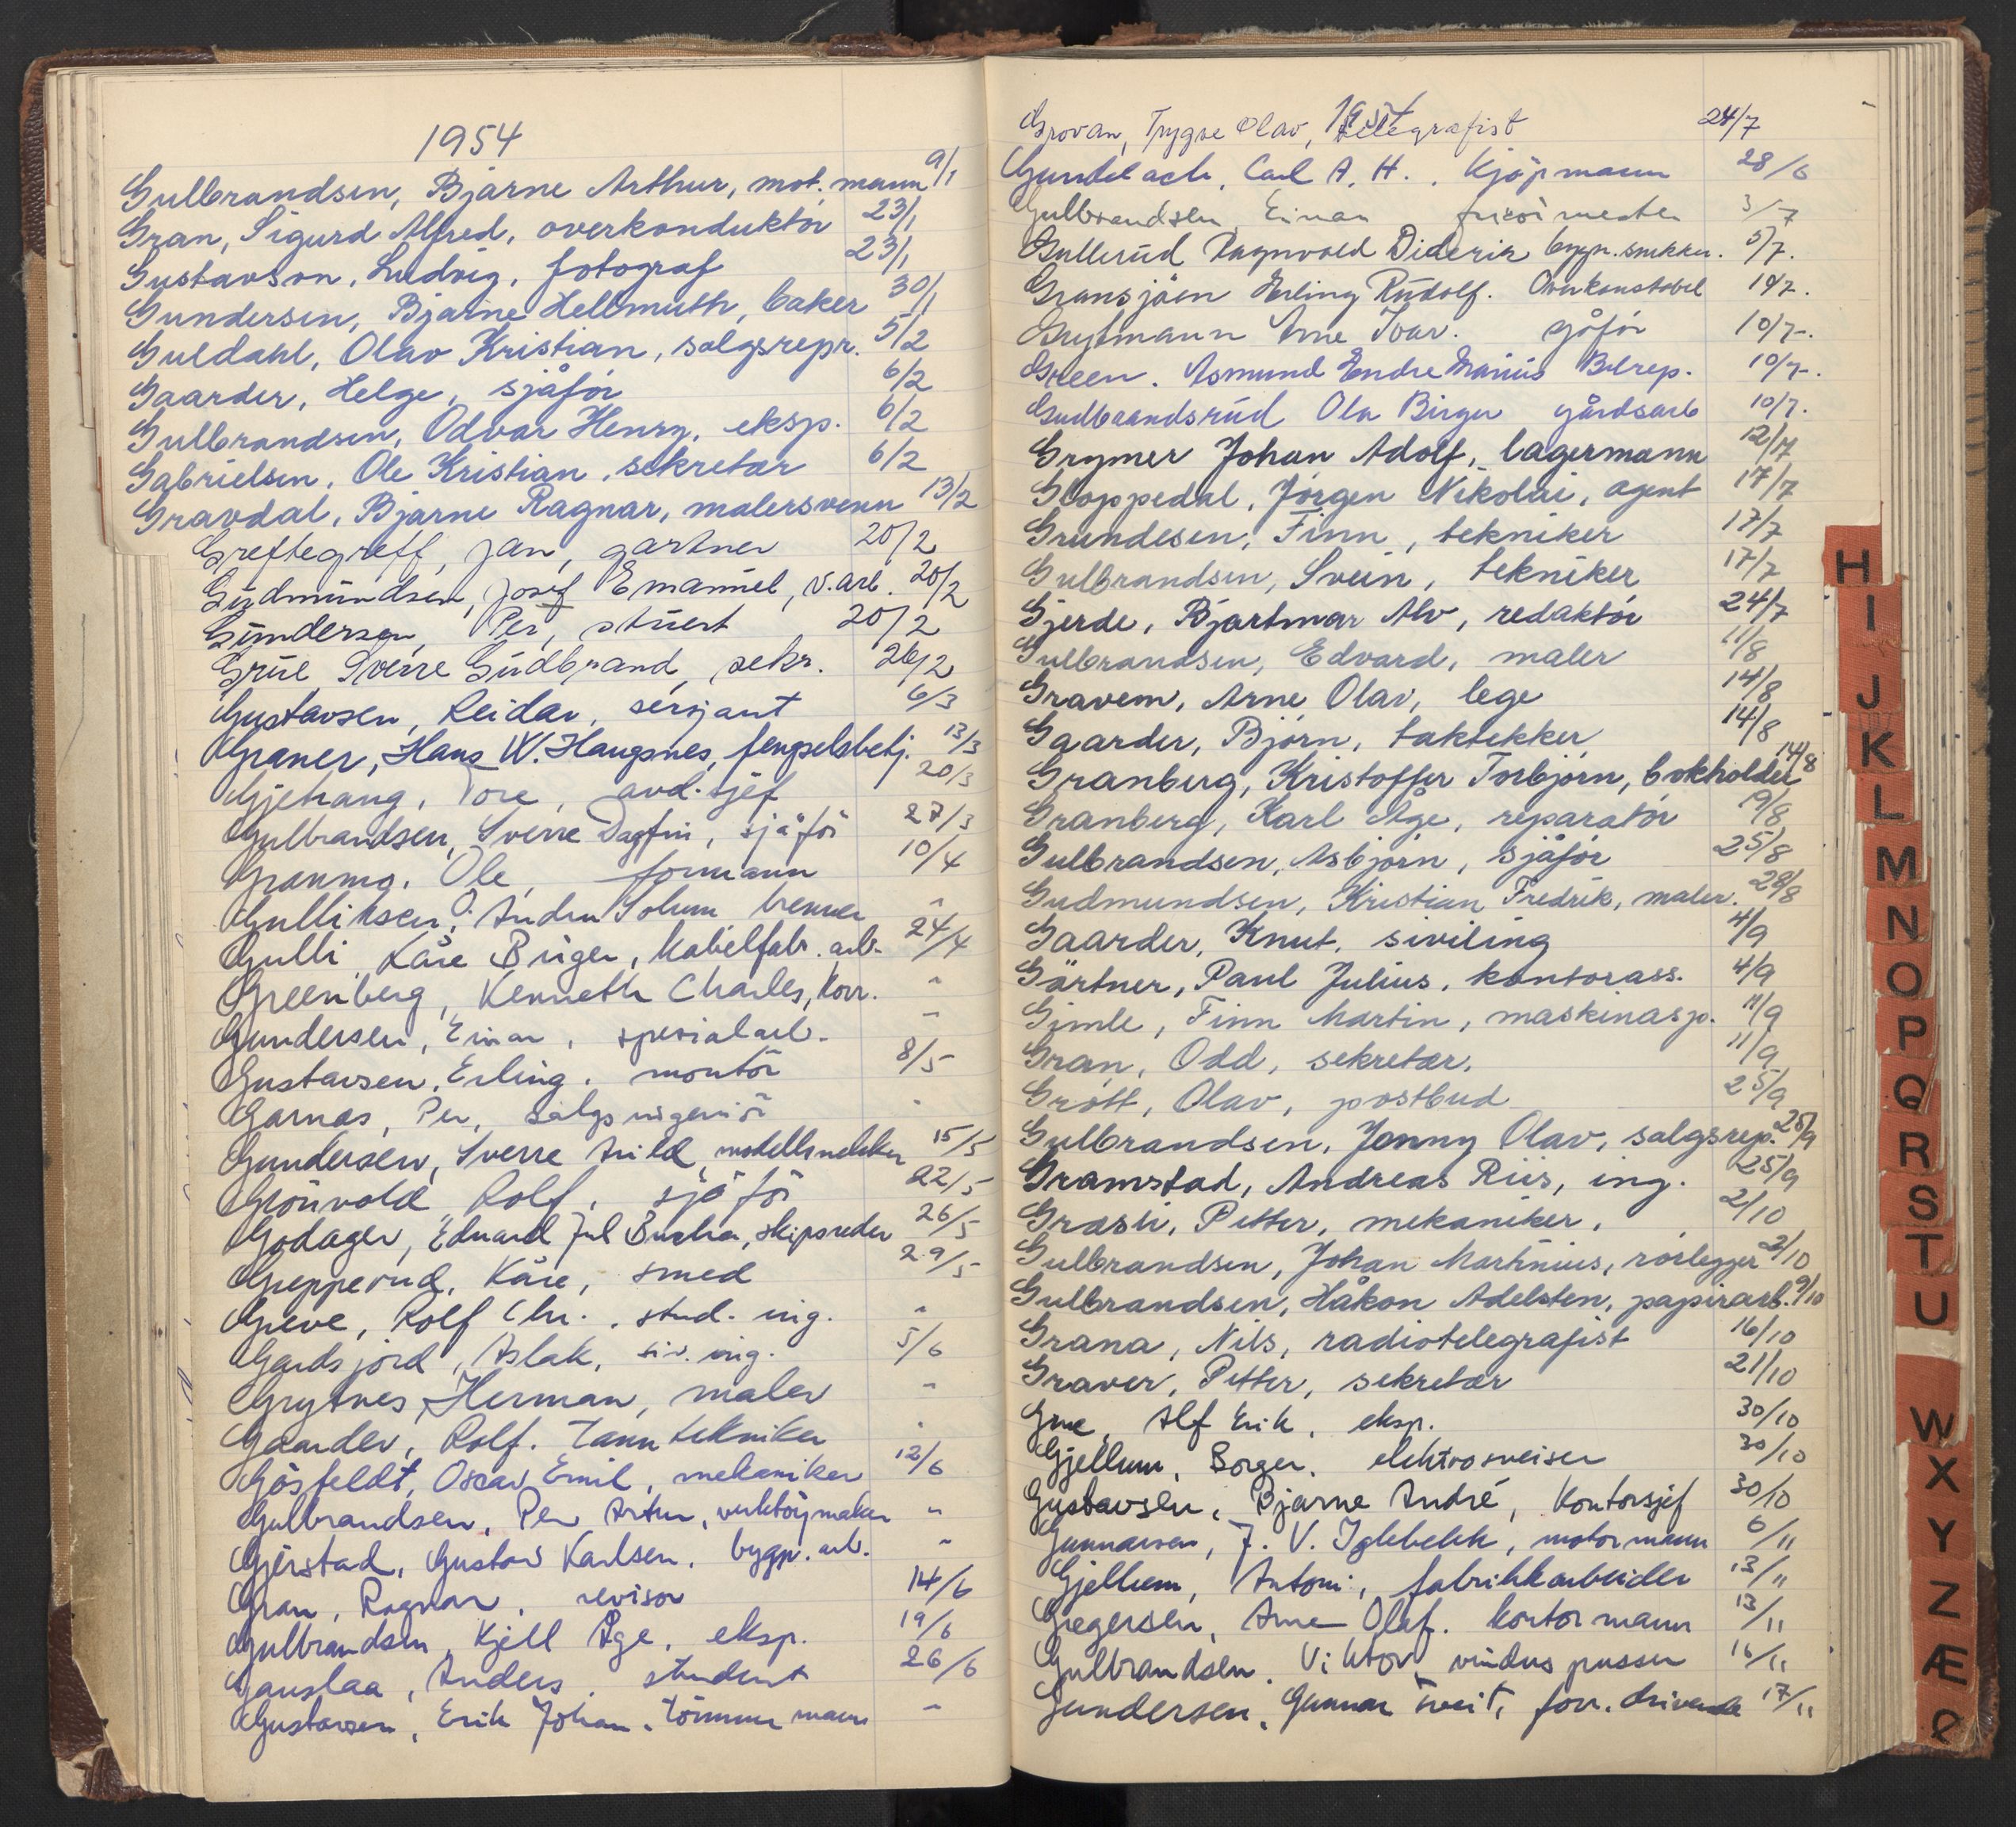 1954
Gulbrandsen, Bjarne Arthur, mot. mann 9/1
Gran, Sigurd Alfred, overkonduktör 23/1
Gustavson, Ludvig, fotograf 23/1
Gundersen, Bjarne Hellmuth, baker 30/1
Guldahl, Olav Kristian, salgsrepr. 5/2
Gaarder, Helge, sjåför 6/2
Gulbrandsen, Odvar Henry, eksp. 6/2
Gabrielsen, Ole Kristian, sekretær 6/2
Gravdal, Bjarne Ragnar, malersvenn 13/2
Greftegreff, Jan, gartner 20/2
Gudmundsen, Josef Emanuel, v.arb. 20/2
Gundersen, Per, stuert 20/2
Grue Sverre Gudbrand, sekr. 26/2
Gustavsen, Reidar, sersjant 6/3
Graner, Hans W. Haugsnes, fengselsbetj. 13/3
Gjehaug, Tore, avd. sjef 20/3
Gulbrandsen, Sverre Dagfin, sjåför 27/3
Granmo, Ole, formann 10/4
Gulliksen, Andrew Solum brenner "
Gulli Kåre Birger, Kabelfabr. arb. 24/4
Greenberg, Kenneth Charles, Korr. "
Gundersen, Einar, spesialarb. "
Gustavsen, Erling, montör 8/5
Garnas, Per, Salgsingeniör "
Gundersen, Sverre Arild, modellsnekker 15/5
Grönvold, Rolf, sjåför 22/5
Godager, Edvard Jul , skipsreder 26/5
Grepperud, Kåre, smed 29/5
Greve, Rolf Chr., stud. ing. "
Gardsjord, Aslak, siv. ing. 5/6
Grytnes, Herman, maler "
Gaarder, Rolf. Tanntekniker "
Gösfeldt, Oscar Emil, mekaniker 12/6
Gulbrandsen, Per Artur, verktöymaker "
Gjerstad, Gustav Karlsen, bygn. arb. "
Gran, Ragnar, revisor 14/6
Gulbrandsen, Kjell Åge, eksp. 19/6
Gauslaa, Anders, student 26/6
Gustavsen, Erik Johan, Tömmermann "
1954
Grovan, Trygve Olav, telegrafist 24/7
Gundelach, Carl A. H., Kjöpmann 28/6
Gulbrandsen Einar frisörmester 3/7
Gullerud Ragnvald Diderik bygn.snekker. 5/7.
Gransjöen Erling Rudolf. Overkonstabel 10/7.
Grytmann Arne Ivar. sjåför 10/7.
Green. Asmund Endre Marius Bilrep. 10/7.
Gudbrandsrud Ola Birger gårdsarb 10/7.
Grymer Johan Adolf, lagermann 12/7
Gloppedal, Jörgen Nikolai, agent 17/7
Grundesen, Finn, tekniker 17/7
Gulbrandsen, Svein, tekniker 17/7
Gjerde, Bjartmar Alv, redaktör 24/7
Gulbrandsen, Edvard, maler 11/8
Gravem, Arne Olav, lege 14/8
Gaarder, Björn, taktekker 14/8
Granberg, Kristoffer Torbjörn, bokholder 14/8
Granberg, Karl Åge, reparatör 19/8
Gulbrandsen, Asbjörn, sjåför 25/8
Gudmundsen, Kristian Fredrik, maler. 28/8
Gaarder, Knut, siviling 4/9
Gärtner, Paul Julius, kontorass. 4/9
Gimle, Finn Martin, maskinasp. 11/9
Gran, Odd, sekretær. 11/9
Grött, Olav, postbud 25/9
Gulbrandsen, Jonny Olav, salgsrep. 25/9
Gramstad, Andreas Riis, ing. 25/9
Grasli, Petter, mekaniker. 2/10
Gulbrandsen, Johan Martinius, rörlegger 2/10
Gulbrandsen, Håkon Adelsten, papirarb. 9/10
Grana, Nils, radiotelegrafist 16/10
Graver, Petter, sekretær 21/10
Grue, Alf Erik, eksp. 30/10
Gjellum, Borger, elektrosveiser 30/10
Gustavsen, Bjarne André, Kontorsjef 30/10
Gunnarsen, J. V. Iglebekk, motormann 6/11
Gjellum, Antoni, fabrikkarbeider 13/11
Gregersen, Arne Olaf. kontormann 13/11
Gulbrandsen, Viktor vinduspusser 16/11
Gundersen, Gunnar Tveit, forr. drivende 17/11
H
I
J
K
L
M
N
O
P
Q
R
S
T
U
W
X
Y
Z
Æ